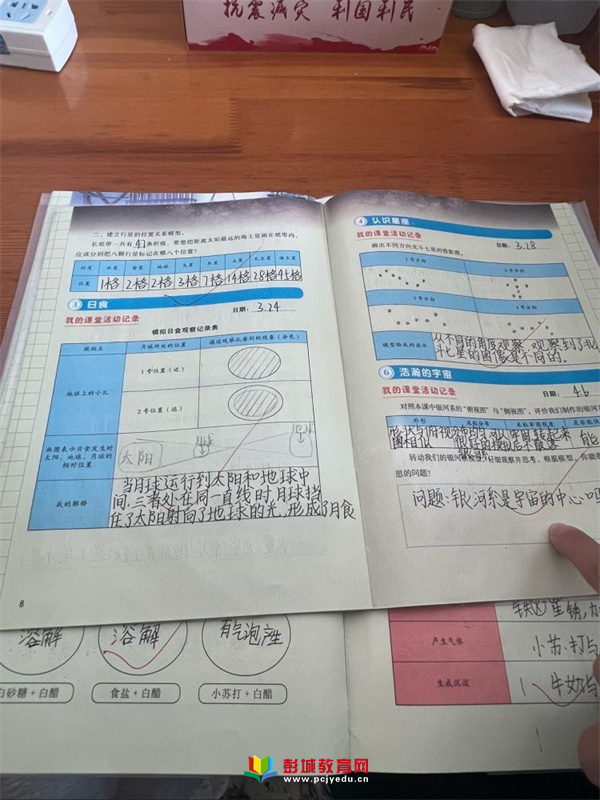 抗震减灾 利国利民
二、建立行星的位置关系模型。
长纸带一共有41条折痕，要想把距离太阳最远的海王星画在纸带内，
应该分别把八颗行星标记在哪八个位置？
行星 水星 金星 地球 火星 木星 土星 天王星 海王星
位置 1格 2格 2格 3格 7格 14格 28格
3 日食
日期：3.24
我的课堂活动记录
模拟日食观察记录表
观测点 月球所处的位置 通过观察孔看到的现象（涂色）
地球上的小孔
1号位置（近）
2号位置（远）
画图表示日食发生时
太阳、地球、月球的
相对位置
太阳
我的解释
当月球运行到太阳和地球中
间,三者处在同一直线时,月球挡
住了太阳射向了地球的光,形成了月食
8
4 认识星座
我的课堂活动记录
日期：3.28
画出不同方向北斗七星的投影图。
1号方向
2号方向
3号方向
4号方向
模型给我的启示
从不同的角度观察，观察到了北
斗七星的图像是不同的。
6 浩瀚的宇宙
我的课堂活动记录
日期：4.6
对照本课中银河系的“俯视图”与“侧视图”，评价我们制作的银河
外形
能
思的问题？
问题：银河系是宇宙的中心吗
溶解
溶解
有气泡产生
白砂糖+白醋
食盐+白醋
小苏打+白醋
产生气体
小苏打与
生成沉淀
牛奶与
彭城教育网
www.pcjyedu.cn